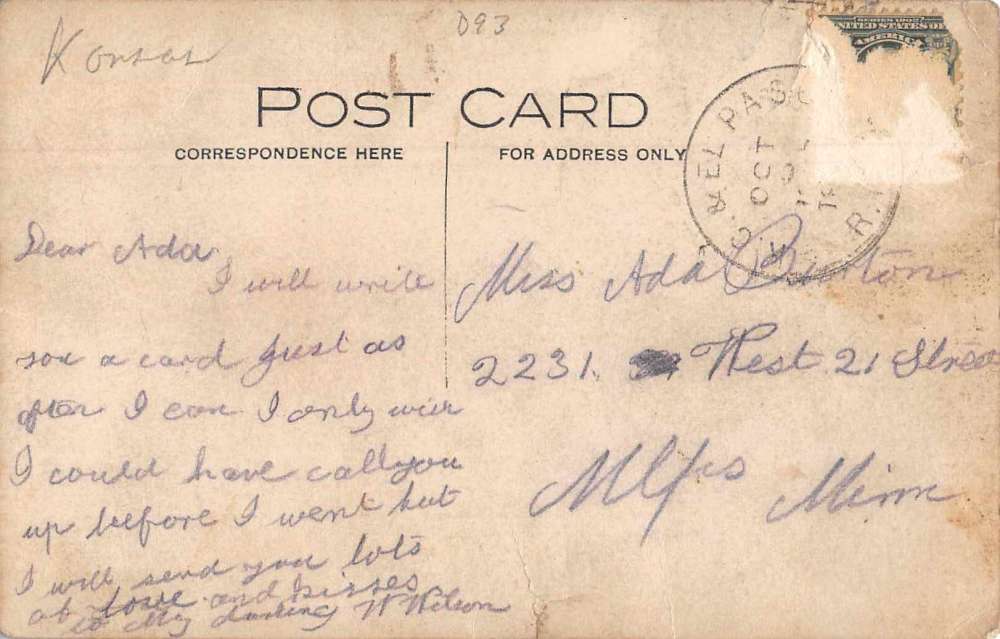 Kansas
D93
SERIES 1902
UNITED STATES OF
AMERIC
POST CARD
CORRESPONDENCE HERE
FOR ADDRESS ONLY
K.C. & EL PAS
R.
OCT
Dear Ada,
I will write
you a card just as
often I can I only wish
I could have call you
up beefore I went but
I will send you lots
of love and kisses
to My darling W Wilson
Miss Ada Burton
2231 West 21 Street
Mlps Minn